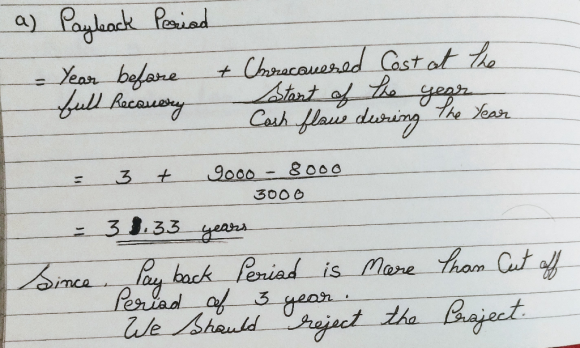 a) Payback Period
= Year before + Unrecovered Cost at the
full Recovery Start of the year
Cash flow during the Year
= 3 + 9000 - 8000
3000
= 3.33 years
Since, Pay back Period is More Than Cut off
Period of 3 year.
We Should reject the Project.